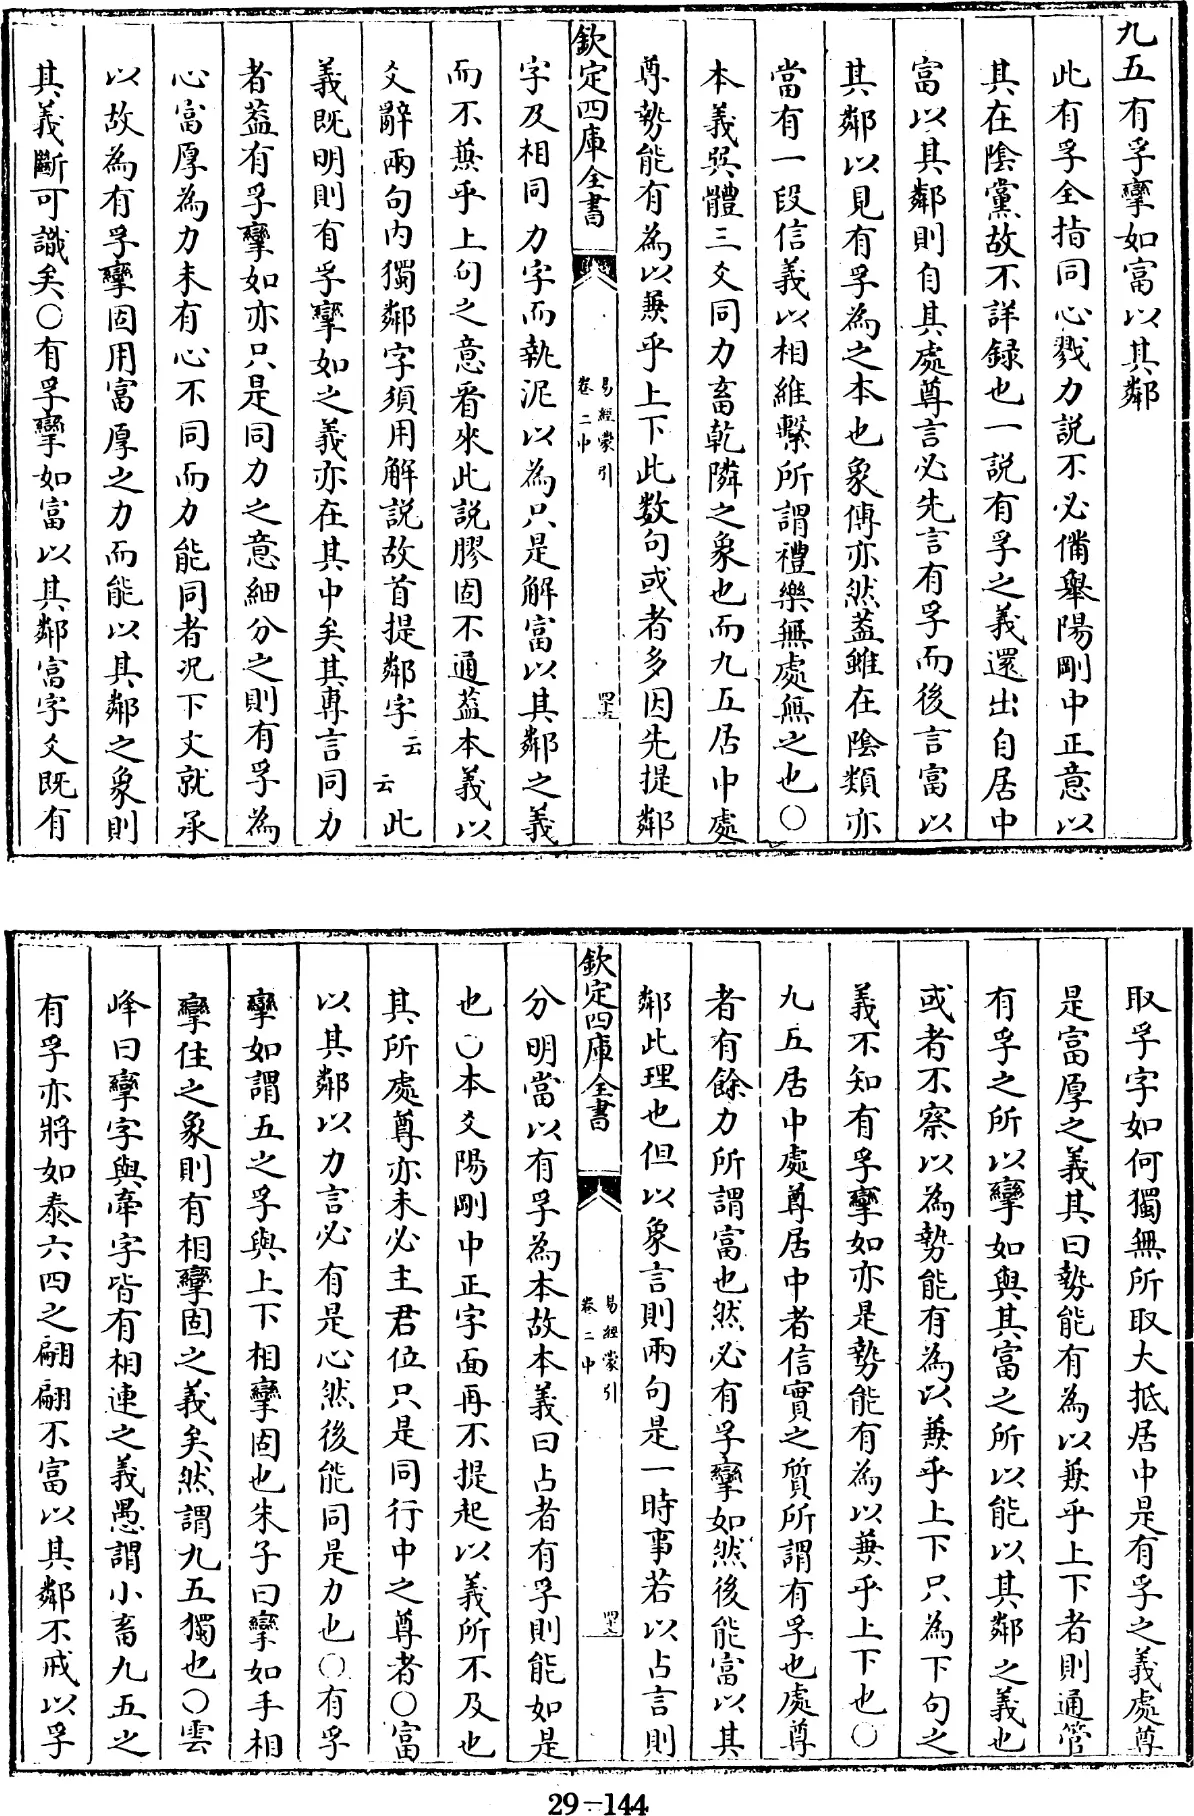 九五有孚攣如富以其鄰
此有孚全指同心戮力說不必備舉陽剛中正意以
其在陰黨故不詳録也一說有孚之義還出自居中
富以其鄰則自其處尊言必先言有孚而後言富以
其鄰以見有孚為之本也象傳亦然葢雖在陰類亦
當有一段信義以相維繫所謂禮樂無處無之也〇
本義巽體三爻同力畜乾隣之象也而九五居中處
尊勢能有為以兼乎上下此數句或者多因先提鄰
欽定四庫全書
易經蒙引
卷二中
字及相同力字而執泥以為只是解富以其鄰之義
而不兼乎上句之意看來此說膠固不通葢本義以
爻辭兩句内獨鄰字須用解說故首提鄰字云云此
義既明則有孚攣如之義亦在其中矣其專言同力
者葢有孚攣如亦只是同力之意細分之則有孚為
心富厚為力未有心不同而力能同者况下文就承
以故為有孚攣固用富厚之力而能以其鄰之象則
其義斷可識矣〇有孚攣如富以其鄰富字爻既有
取孚字如何獨無所取大抵居中是有孚之義處尊
是富厚之義其曰勢能有為以兼乎上下者則通管
有孚之所以攣如與其富之所以能以其鄰之義也
或者不察以為勢能有為以兼乎上下只為下句之
義不知有孚攣如亦是勢能有為以兼乎上下也〇
九五居中處尊居中者信實之質所謂有孚也處尊
者有餘力所謂富也然必有孚攣如然後能富以其
鄰此理也但以象言則兩句是一時事若以占言則
欽定四庫全書
易經蒙引
卷二中
分明當以有孚為本故本義曰占者有孚則能如是
也〇本爻陽剛中正字面再不提起以義所不及也
其所處尊亦未必主君位只是同行中之尊者〇富
以其鄰以力言必有是心然後能同是力也〇有孚
攣如謂五之孚與上下相攣固也朱子曰攣如手相
攣住之象則有相攣固之義矣然謂九五獨也〇雲
峰曰攣字與牽字皆有相連之義愚謂小畜九五之
有孚亦將如泰六四之翩翩不富以其鄰不戒以孚
29-144